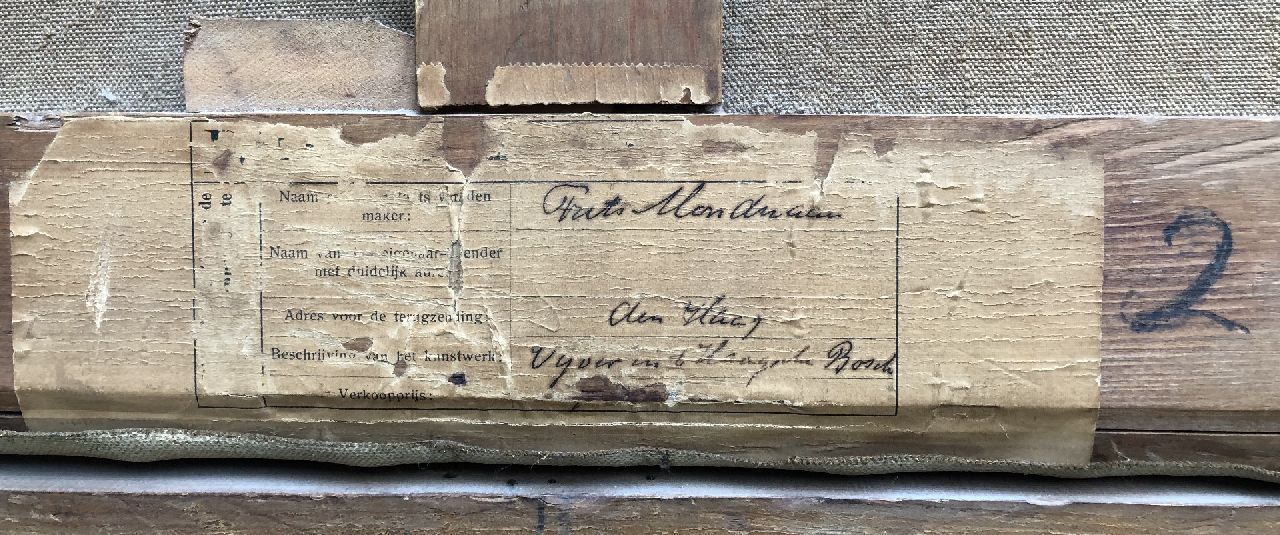 Naam den Frits Mondriaan
maker:
Naam van
met duidelijk
Adres voor de terugzending: den Haag
Beschrijving van het kunstwerk: Vijver in 't Haagsche Bosch
Verkoopprijs:
de
te
2